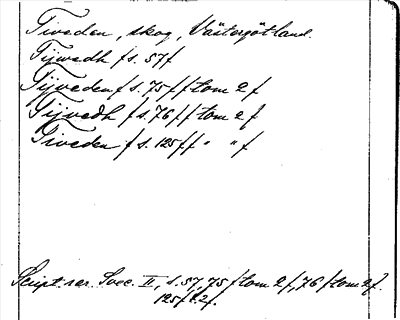 Tiveden, skog, Västergötland.
Tijwedh f s. 57 f
Tijveden f s. 75 f f tom 2 f
Tijvedh f s. 76 f f tom 2 f
Tiveden f s. 125 f f " " f
Script. rer. Svec. II, s. 57, 75 f tom 2 f, 76 f tom 2 f.
125 f t. 2 f.